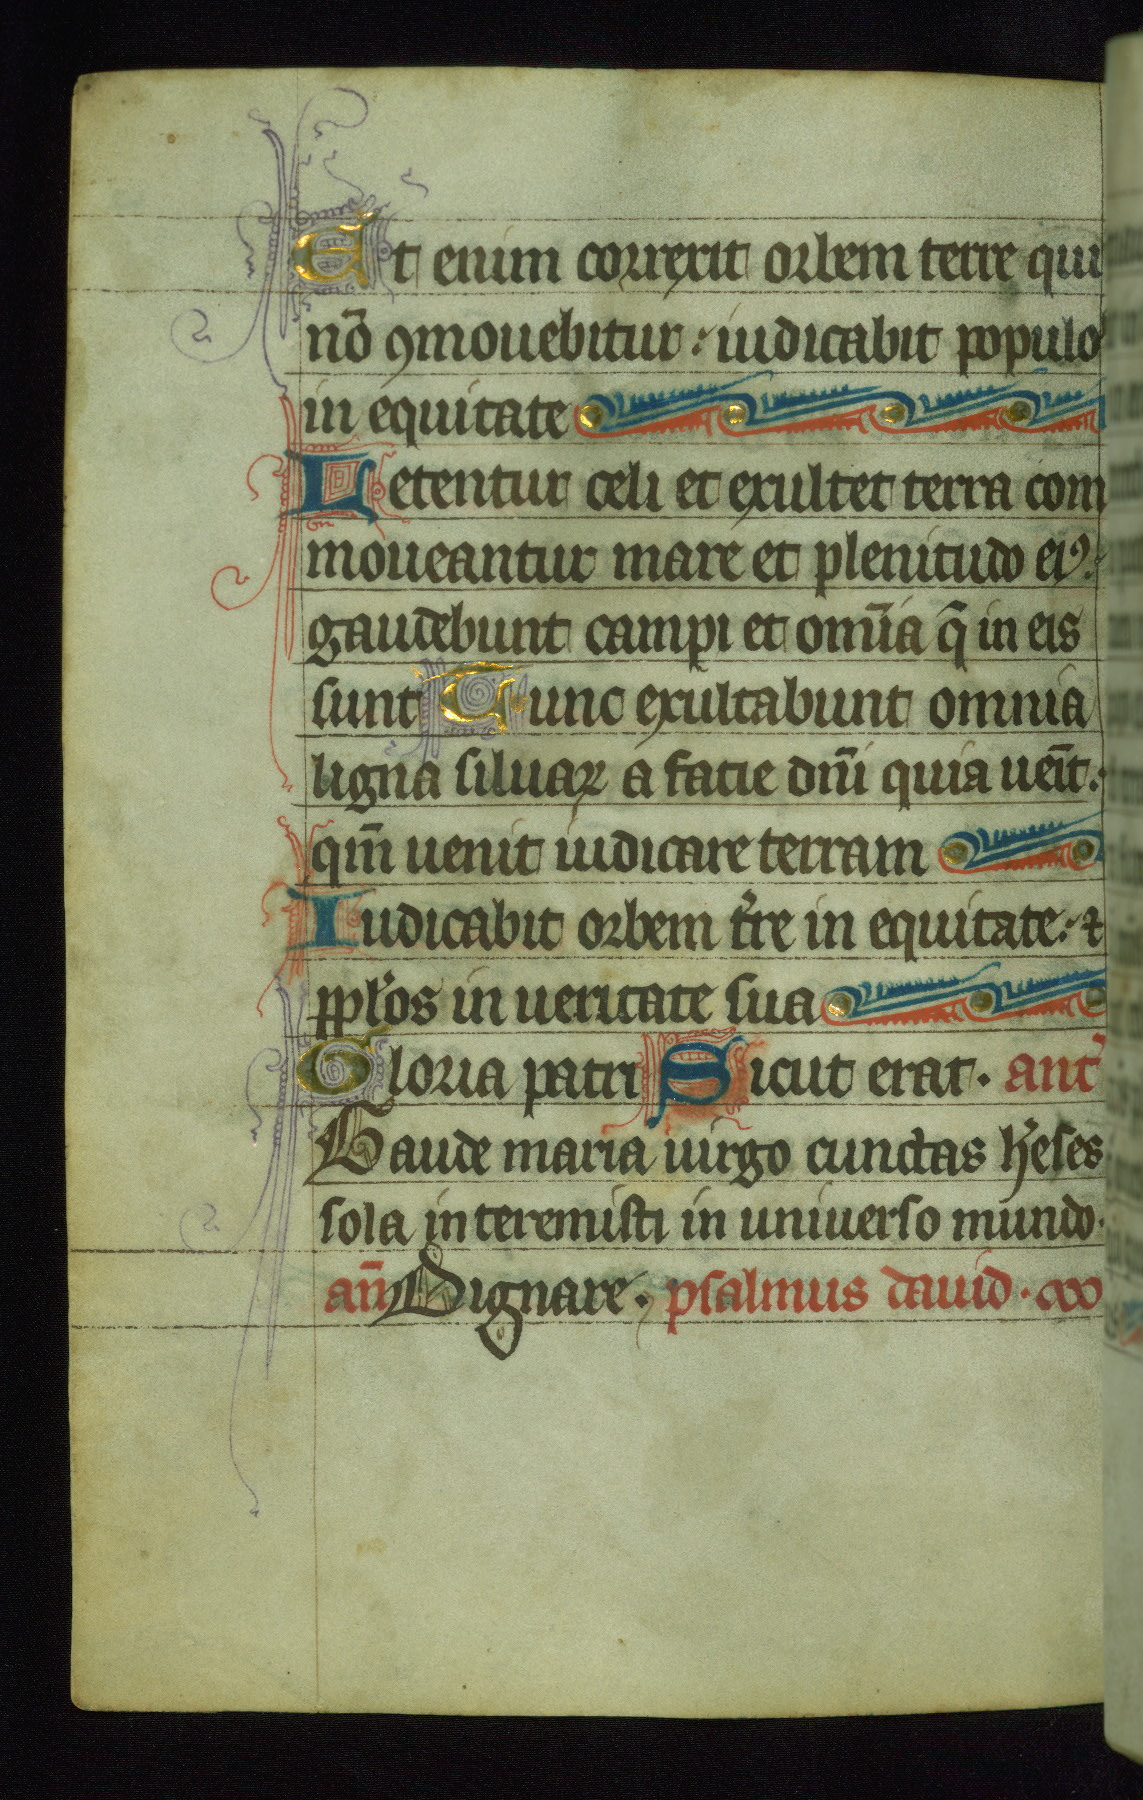 Et enim correxit orbem terre qui
nō ꝯmouebitur: iudicabit populo
in equitate
Letentur celi et exultet terra com
moueantur mare et plenitudo eiꝰ:
gaudebunt campi et om̄ia q̄ in eis
sunt Tunc exultabunt omnia
ligna siluaꝝ a facie dn̄i quia uen̄it.
qm̄ uenit iudicare terram
Iudicabit orbem t̄re in equitate: ⁊
pp̄los in ueritate sua
Gloria patri Sicut erat. ant̓
Gaude maria uirgo cunctas h̓eses
sola interemisti in uniuerso mundo.
an̄ Dignare. psalmus dauid.